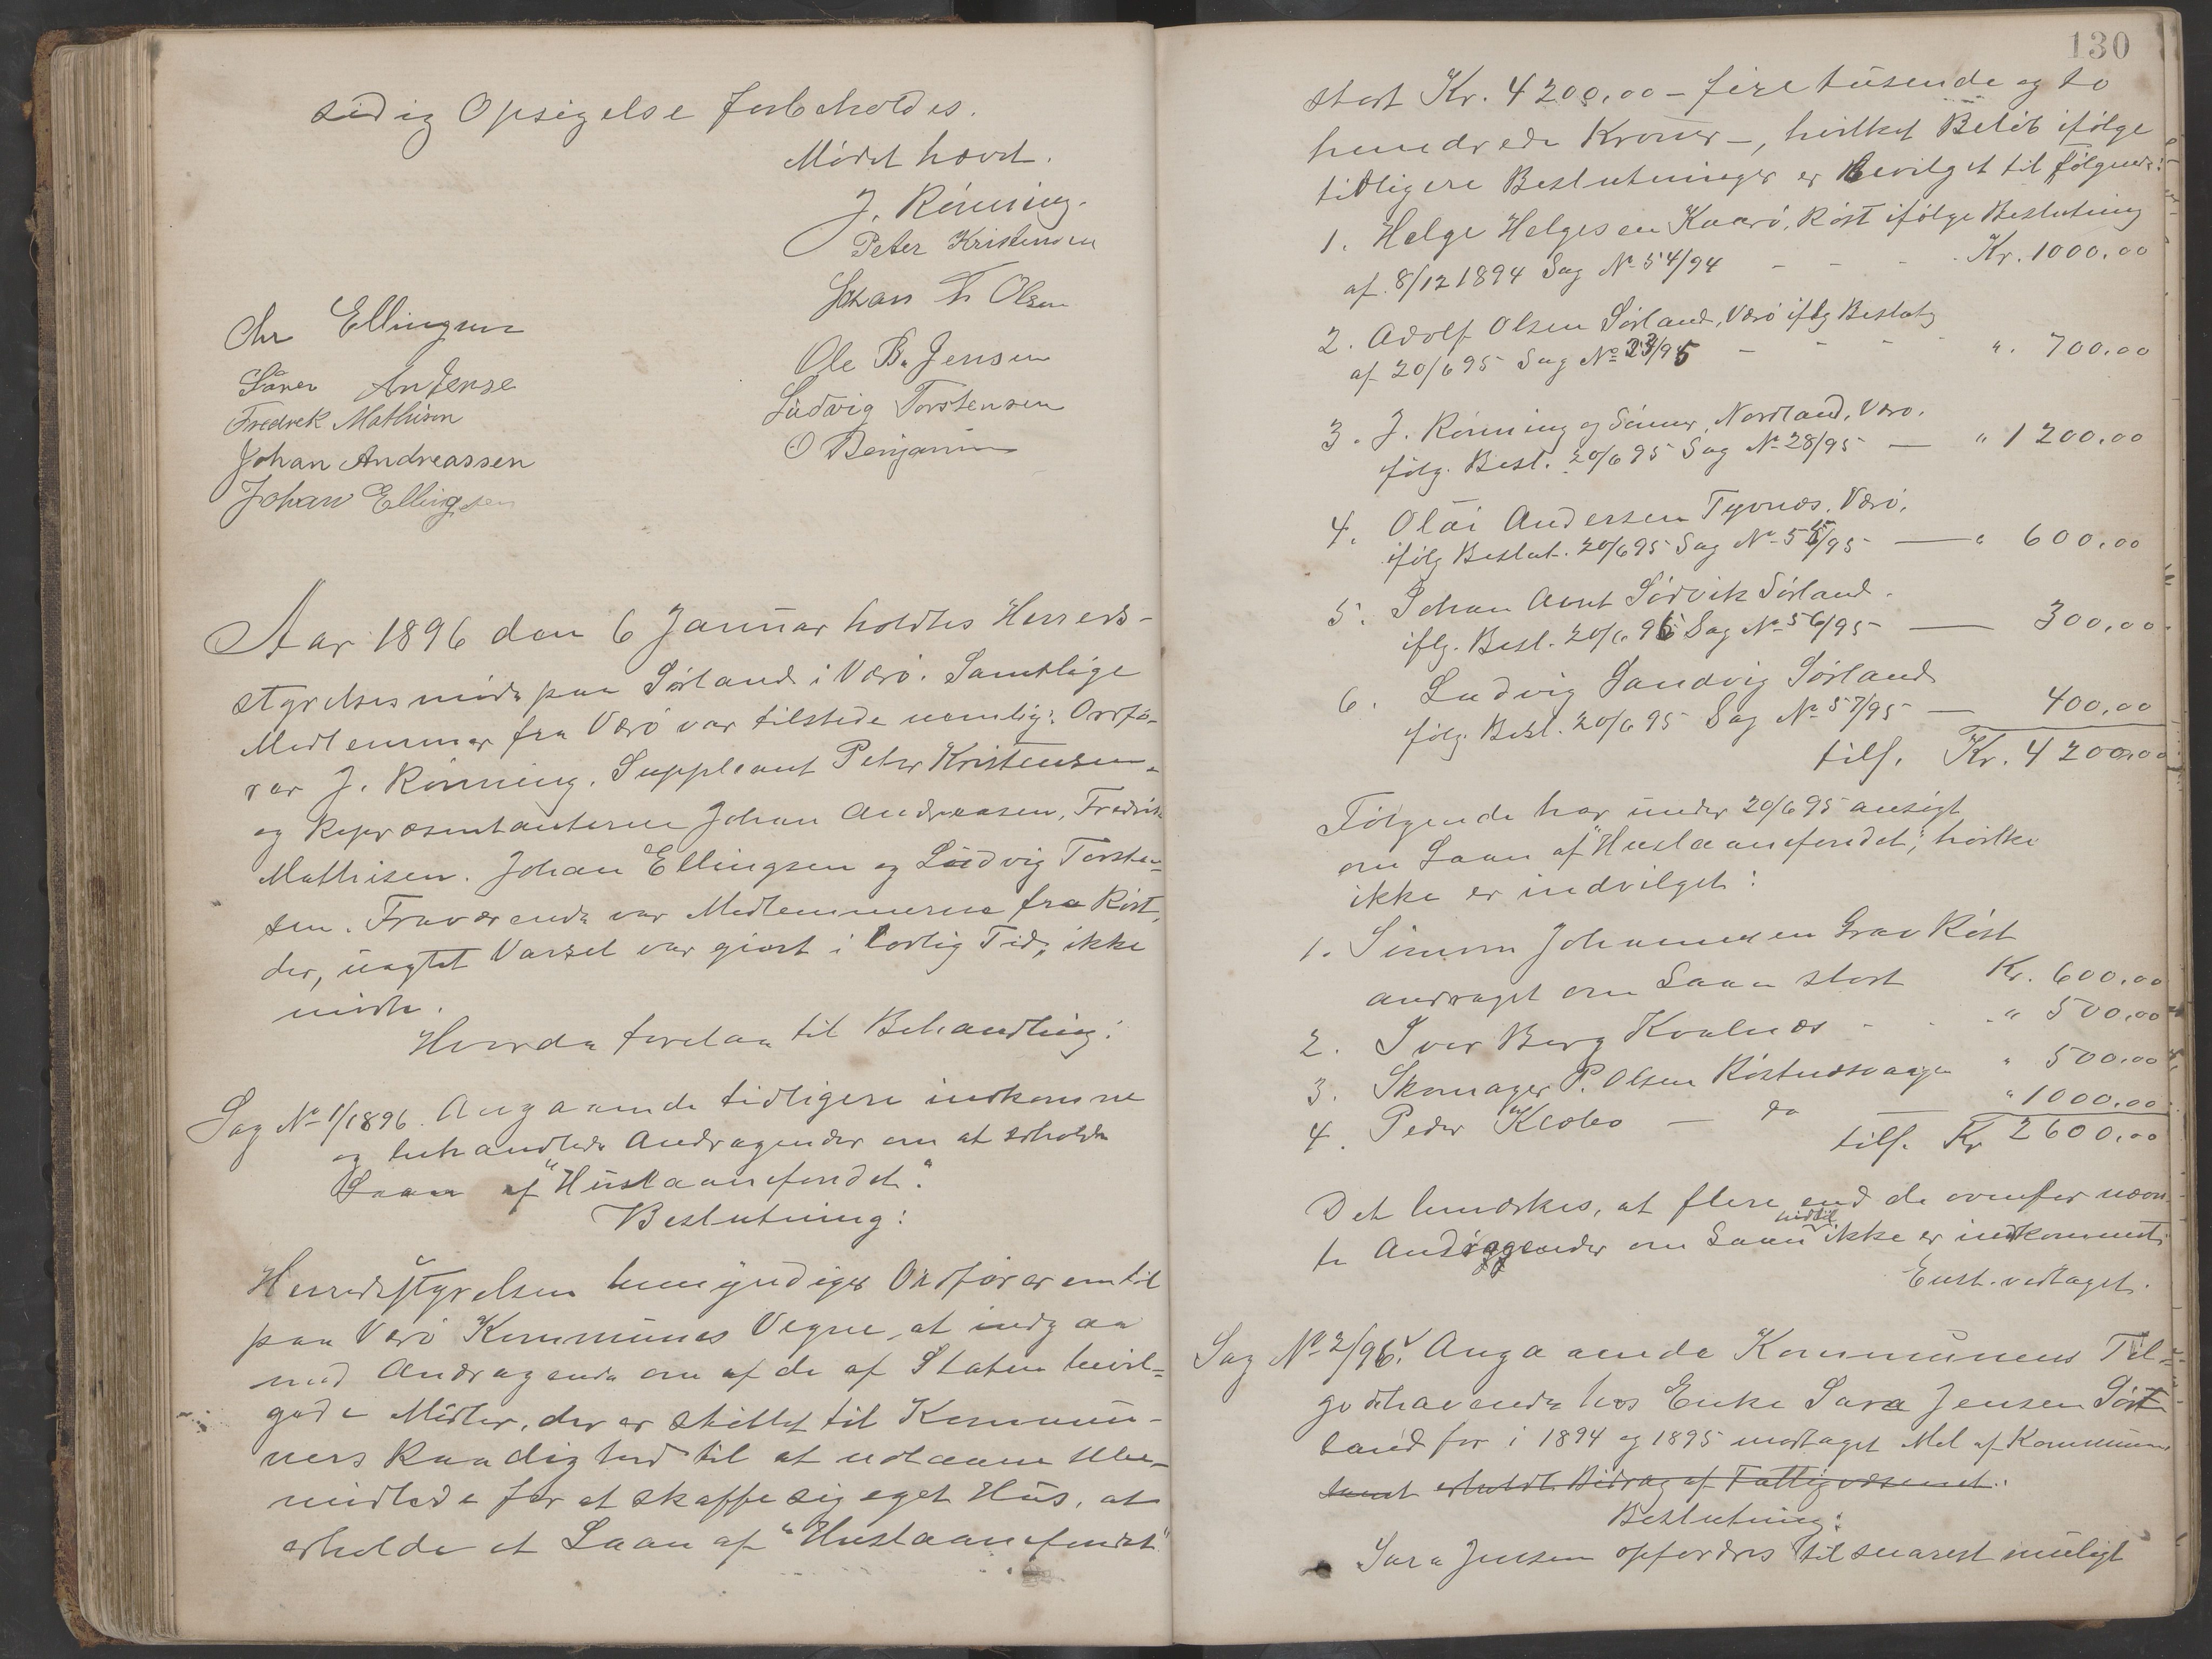 sidig Opsigelse forbeholdes.
Mødet hævet.
J. Rönning.
Peter Kristensen
Johan Olsen
Ole B. Jensen
Ludvig Torstensen
O Benjamin
Chr Ellingsen
Sören AnJense
Fredrek Mathisen
Johan Andreassen
Johan Ellingsen
Aar 1896 den 6 Januar holdtes Herreds-
styrelsesmöde paa Sörland i Værö. Samtlige
Medlemmer fra Værö var tilstede nemlig: Ordfö-
rer J. Rönning. Suppleant Peter Kristensen
og Repræsentanterne Johan Andreasen, Fredrik
Mathisen. Johan Ellingsen og Ludvig Torsten-
sen. Fraværende var Medlemmerne fra Röst,
der, uagtet Varsel var gjort i lovlig Tid, ikke
mödte.
Hvorda forelaa til Behandling:
Sag No 1/1896. Angaaende tidligere indkomne
og behandlede Andragender om at erholde
Laan af "Huslaanefondet".
Beslutning:
Herredsstyrelsen bemyndiger Ordföreren til
paa Værö Kommunes Vegne, at indgaa
med Andragende om af de af Staten bevil-
gede Midler, der er stillet til Kommu-
ners Raadighed til at udlaane Ube-
midlede for at skaffe sig eget Hus, at
erholde et Laan af "Huslaanefondet"
130
stort Kr. 4200,00 - fire tusende og to
hundrede Kroner -, hvilket Belöb ifölge
tidligere Beslutninger er bevilget til fölgende:
1. Helge Helgesen Kaarö, Röst ifölge Beslutning
af 8/12 1894 Sag No 54/94 - - - Kr. 1000,00
2. Adolf Olsen Sörland, Værö iflg Beslutg
af 20/6 95 Sag No 23/95 - - - - ". 700,00
3. J. Rönning og Sönner, Nordland, Værö.
fölg. Besl. 20/6 95 Sag No 28/95 — " 1200,00
4. Olai Andersen Tyvnæs, Værö.
ifölg Beslut. 20/6 95 Sag No 55/95 — " 600,00
5. Johan Arnt Sörvik Sörland.
iflg. Besl. 20/6 95 Sag No 56/95 — 300,00
6. Ludvig Sandvig Sörland
fölg. Besl. 20/6 95 Sag No 57/95 — 400,00
tils. Kr. 4200,00
Fölgende har under 20/6 95 ansögt
om Laan af "Huslaanefondet", hvilke
ikke er indvilget:
1. Simon Johannesen Grav Röst
andraget om Laan stort Kr. 600,00
2. Iver Berg Kvalnæs - - - " 500,00
3. Skomager P. Olsen Röstnæsvaagen " 500,00
4. Peder — do — " 1000,00
tils. Kr 2600,00
Det bemærkes, at flere end de ovenfor nævn-
te Andragender om Laan hidtil ikke er indkommet.
Enst. vedtaget.
Sag No 2/96. Angaaende Kommunens Til-
godehavende hos Enke Sara Jensen Sör-
land for i 1894 og 1895 modtaget Mel af Kommunen
samt erholdt Bidrag af Fattigvæsenet.
Beslutning:
Sara Jensen opfordres til snarest muligt